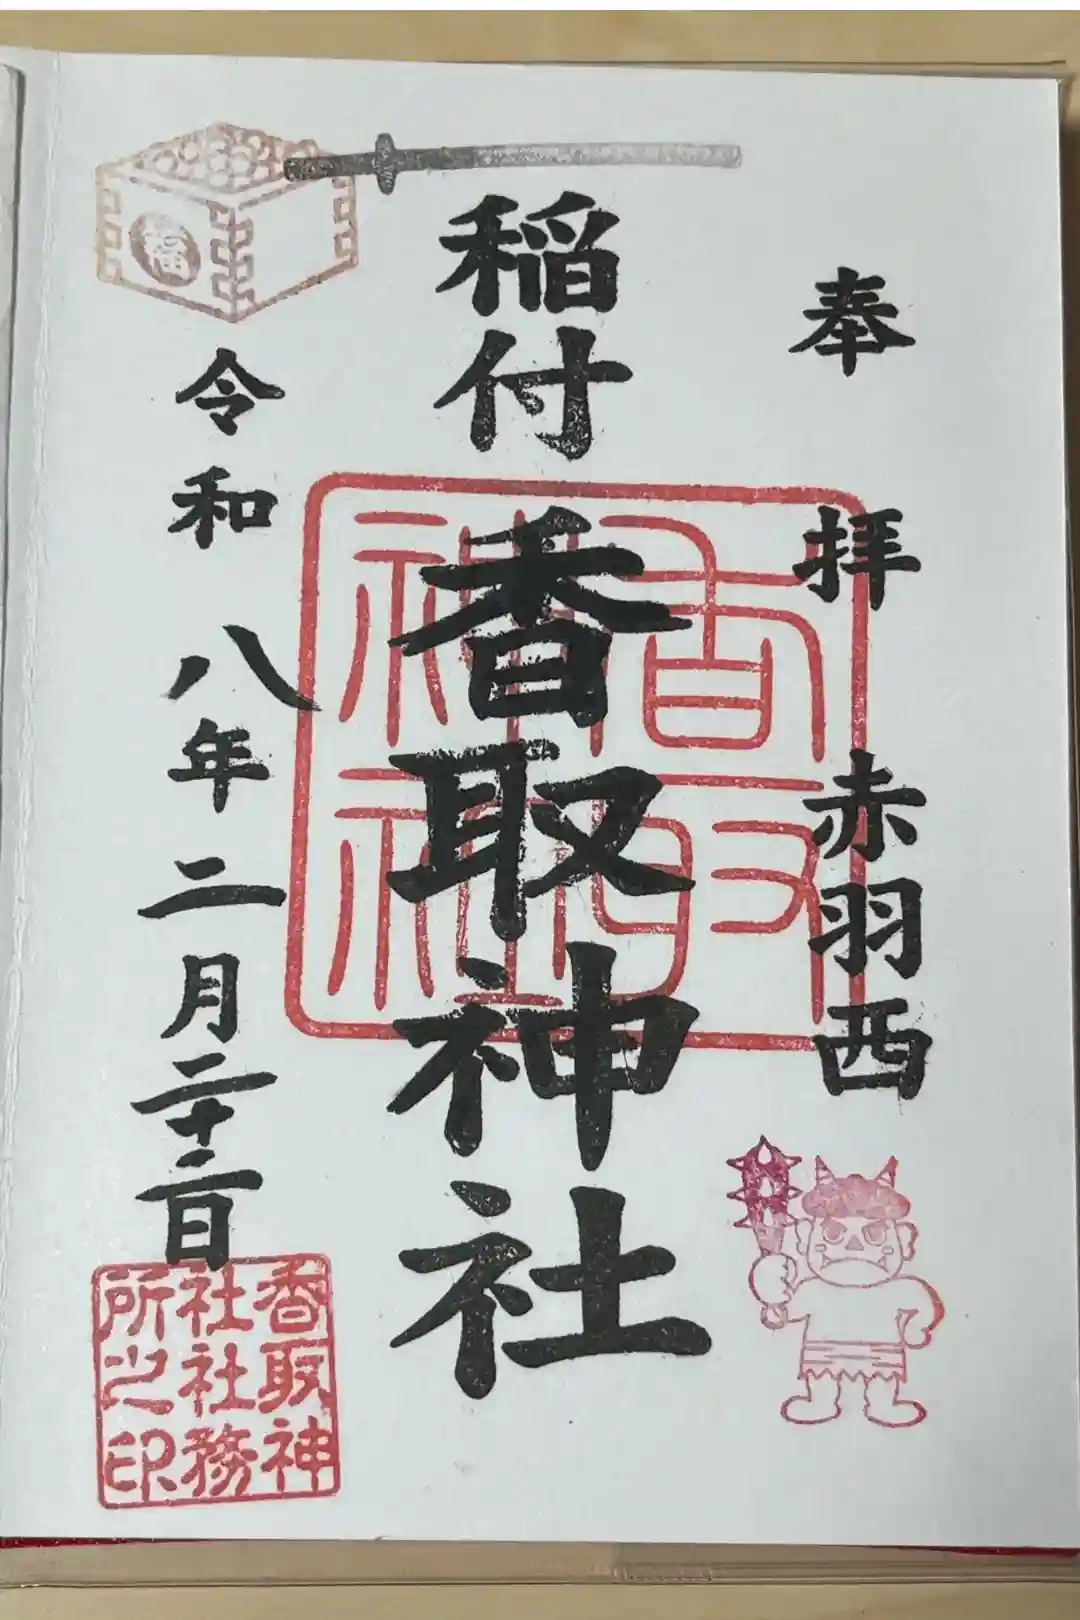 奉拝 赤羽西
稲付 香取神社
香取
神社
福
令和八年二月二十二日
香取神
社社務
所之印